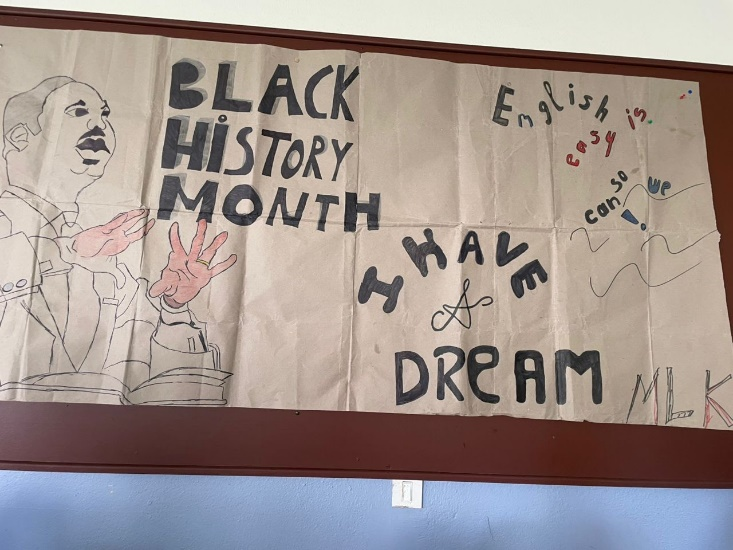 BLACK
HiSTORY
MONTH
English is
easy
so we
can !
I HAVE
A
DREAM
MLK